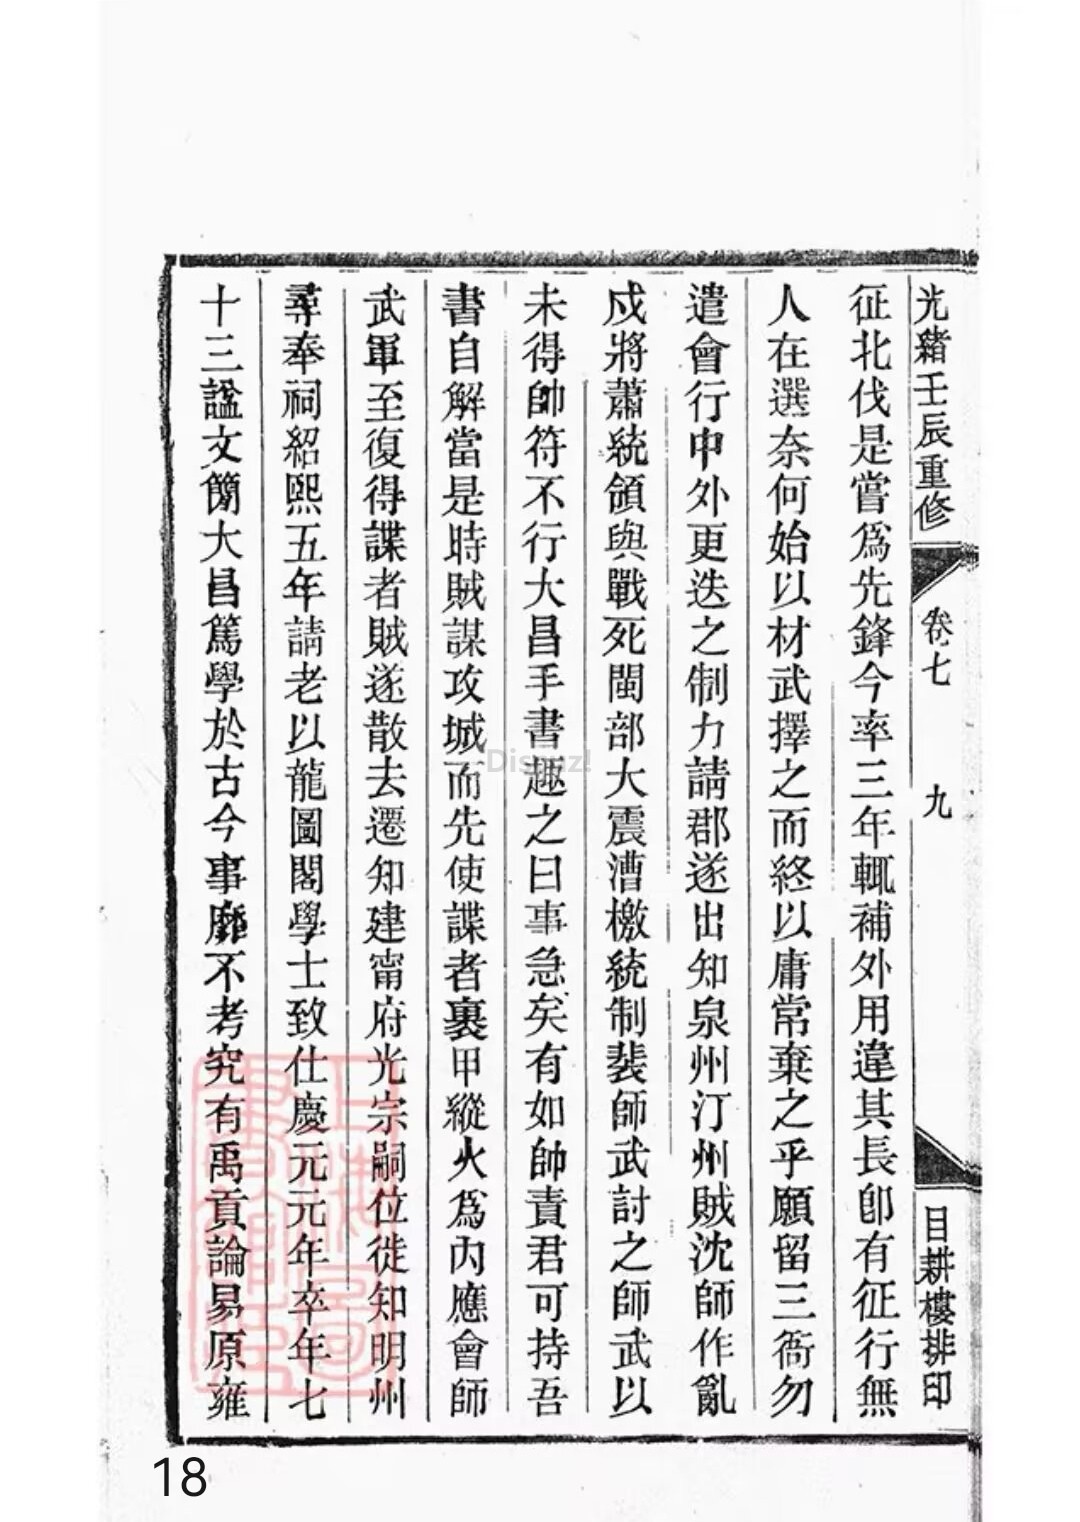 光緒壬辰重修
卷七
九
目耕樓排印
征北伐是嘗爲先鋒今率三年輒補外用違其長卽有征行無
人在選奈何始以材武擇之而終以庸常棄之乎願留三衙勿
遣會行中外更迭之制力請郡遂出知泉州汀州賊沈師作亂
戍將蕭統領與戰死閩部大震漕檄統制裴師武討之師武以
未得帥符不行大昌手書趣之曰事急矣有如帥責君可持吾
書自解當是時賊謀攻城而先使諜者裹甲縱火爲內應會師
武軍至復得諜者賊遂散去遷知建甯府光宗嗣位徙知明州
尋奉祠紹熙五年請老以龍圖閣學士致仕慶元元年卒年七
十三諡文簡大昌篤學於古今事靡不考究有禹貢論易原雍
上海圖書館藏
Dismz!
18